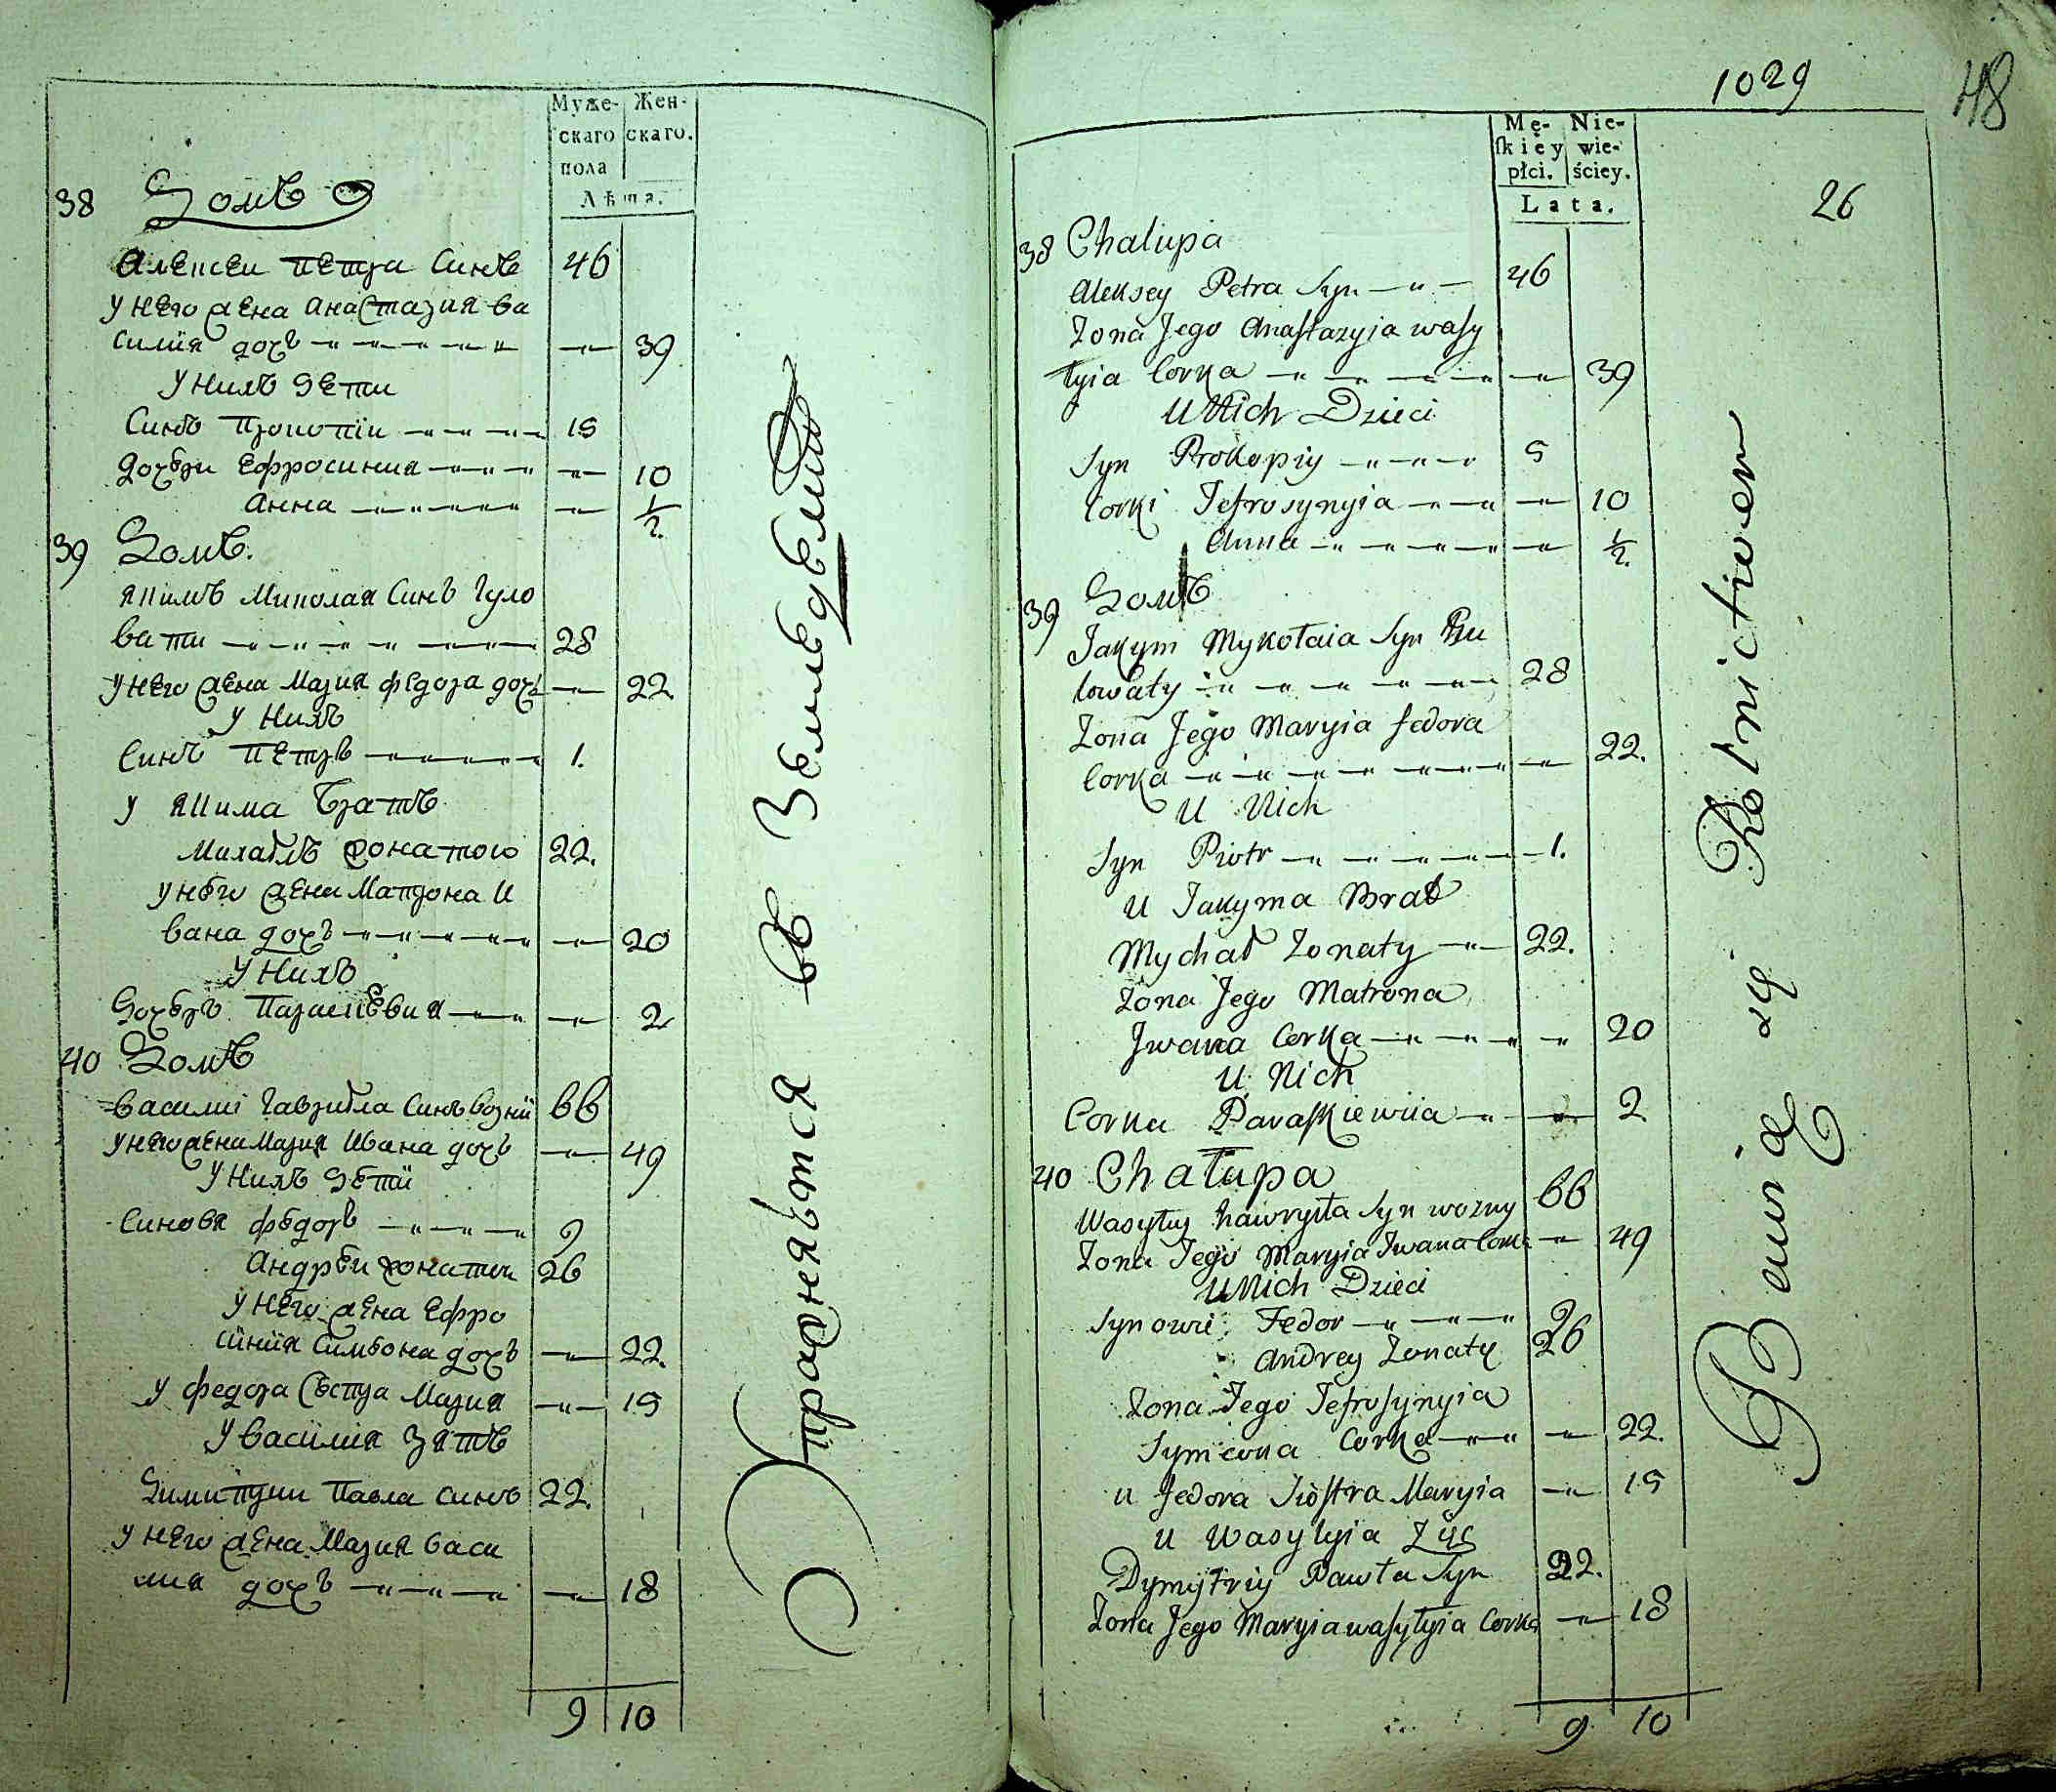 Муже- Жен-
скаго скаго.
пола
Лѣта.
38 Домъ
Алексеи Петра Синъ 46
у него жена Анастазия Ва
силия дочъ 39
у нихъ дети
Синъ Прокопiи 15
дочери Ефросиния 10
Анна 1/2
39 Домъ.
Якимъ Миколая Синъ Гуло
вати 28
у него жена Мария Федора дочъ 22
у нихъ
Синъ Петръ 1.
у Якима Братъ
Михаблъ жонатою 22.
у него жена Матрона И
вана дочъ 20
у нихъ
Дочеръ Параскевия 2
40 Домъ
Василиi Гавриила Синъ Вознiй 66
у него жена Мария Ивана дочъ 49
у нихъ дети
Синовя Федоръ 9
Андреи жонатии 26
у него жена Ефро
синия Симеона дочъ 22.
у Федора Сестра Мария 15
у Василия Зять
Димитрии Павла Синъ 22.
у него жена Мария Васи
лия дочъ 18
9 10
Упражняются въ Земледелии
1029
48
Mę- Nie-
ſkiey wie-
płci. ściey.
Lata.
26
38 Chalupa
Aleksey Petra Syn 46
Zona Jego Anastazyia Wasy
lyia Corka 39
U Nich Dzieci
Syn Prokopiy 5
Corki Jefrosynyia 10
Anna 1/2.
39 Домъ
Jakym Mykołaia Syn Hu
lowaty 28
Zona Jego Maryia Fedora
Corka 22.
U Nich
Syn Piotr 1.
U Jakyma Brat
Mychał Zonaty 22.
Zona Jego Matrona
Jwana Corka 20
U Nich
Corka Paraskiewiia 2
40 Chałupa
Wasyly Hawryła Syn Wozny 66
Zona Jego Maryia Jwana Corka 49
U Nich Dzieci
Synowie Fedor 9
Andrey Zonaty 26
Zona Jego Jefrosynyia
Symeona Corka 22.
U Fedora Siostra Maryia 15
U Wasylyia Zięć
Dymytriy Pawła Syn 22.
Zona Jego Maryia Wasylyia Corka 18
9 10
Bawią się Rolnictwem